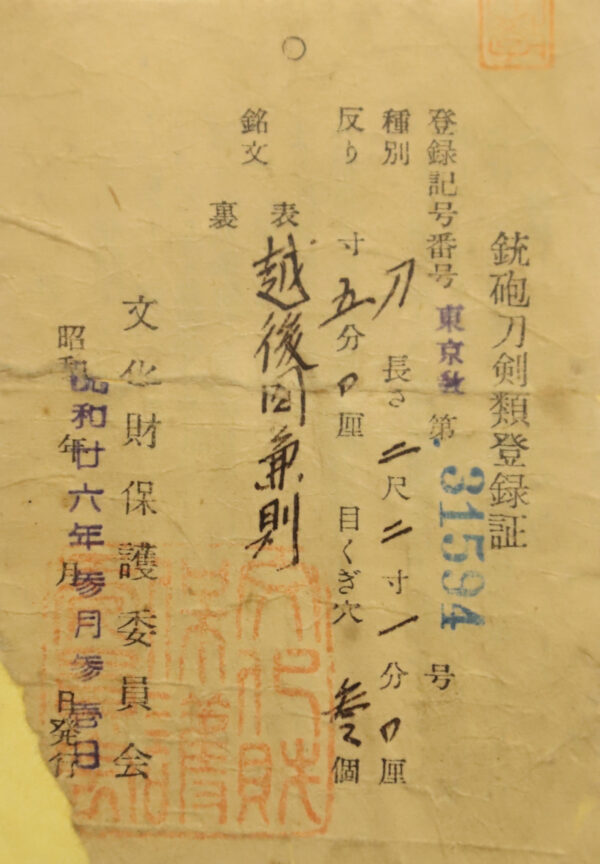 銃砲刀剣類登録証
登録記号番号 東京教 第 31594 号
種別 刀 長さ 二尺二寸一分0厘
反り 寸五分0厘 目くぎ穴 参個
銘文 表 越後国兼則
裏
文化財保護委員会
昭和 年 月 日発行
昭和廿六年参月参壱日